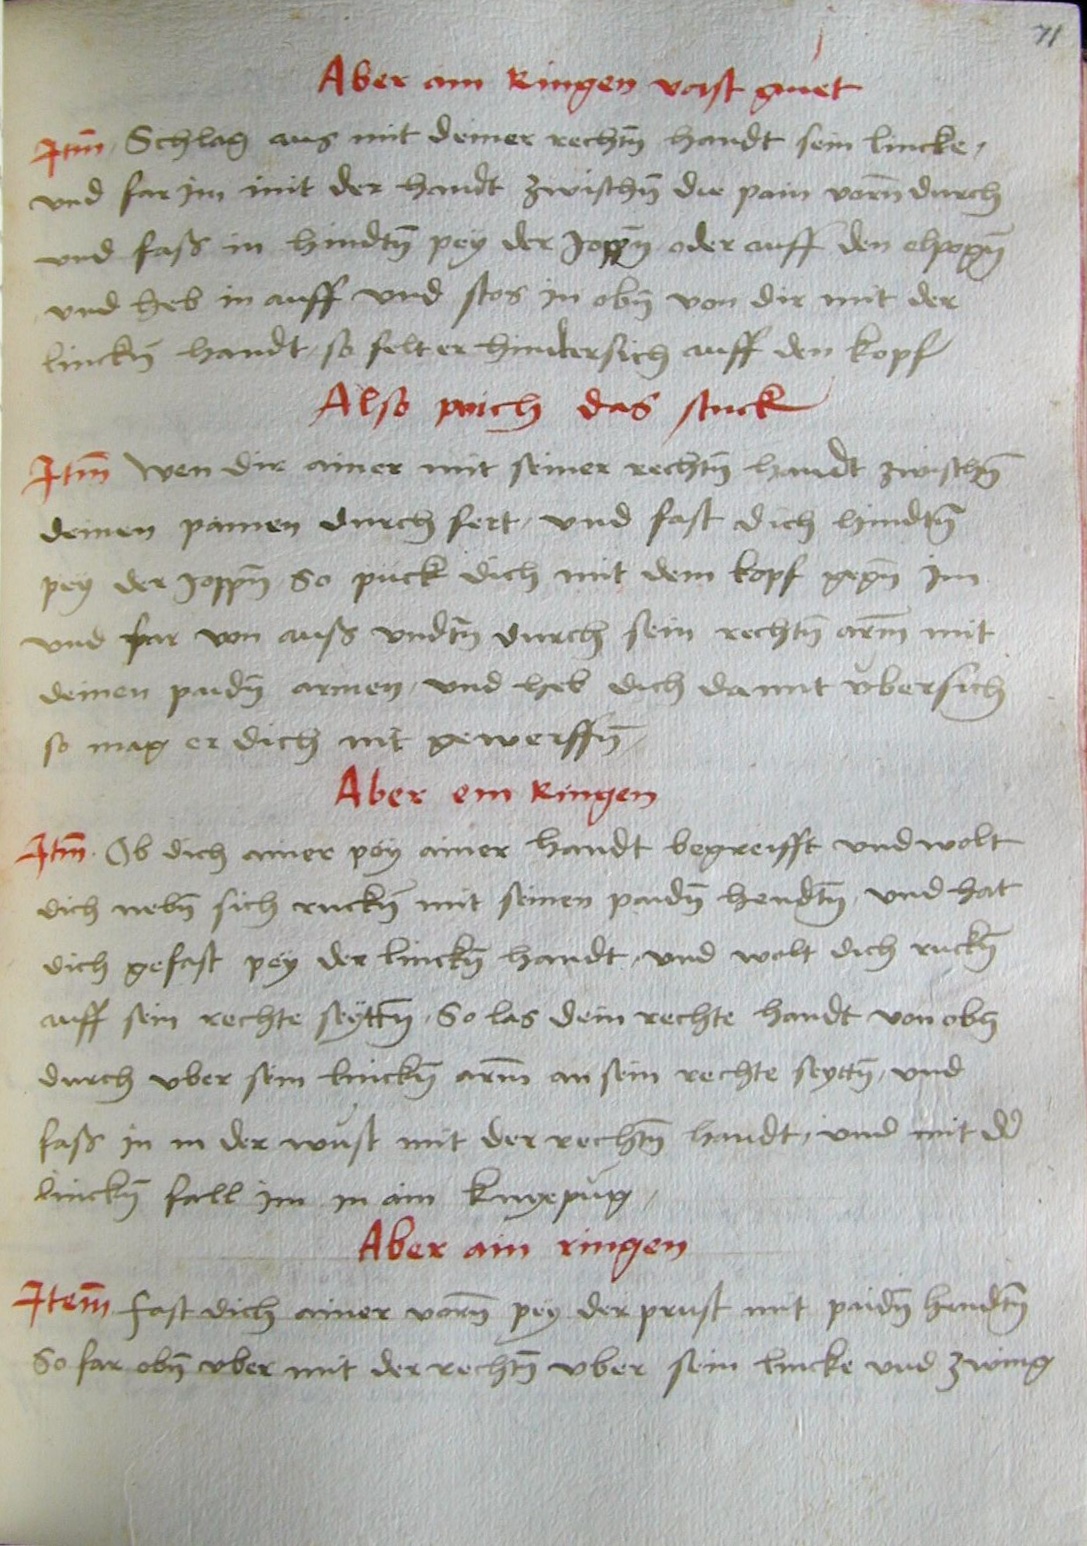 71
Aber ain Ringen vast guet
Itm̄ Schlag aus mit deiner rechtn̄ handt sein lincke,
vnd far im mit der handt zwischn̄ die pain vorn̄ durch
vnd fass in hindtn̄ pey der Joppn̄ oder auff den elpogn̄
vnd heb in auff vnd stos in obn̄ von dir mit der
linckn̄ handt, so felt er hindersich auff den kopf
Also prich das stuck
Itm̄ Wen dir ainer mit seiner rechtn̄ handt zwischn̄
deinen painen durch fert, vnd fast dich hindtn̄
pey der Joppn̄ So puck dich mit dem kopf gegn̄ im
vnd far von auss vndtn̄ durch sein rechtn̄ arm̄ mit
deinen paidn̄ armen, vnd heb dich damit vbersich
so mag er dich nit gewerffn̄,
Aber ein Ringen
Itm̄. Ob dich ainer pey ainer handt begreifft vnd wolt
dich nebn̄ sich ruckn̄ mit seinen paidn̄ hendtn̄, vnd hat
dich gefast pey der linckn̄ handt, vnd wolt dich ruckn̄
auff sein rechte seyttn̄, So las dein rechte handt von obn̄
durch vber sein linckn̄ arm̄ an sein rechte seyttn̄, vnd
fass in in der wust mit der rechtn̄ handt, vnd mit d̄
linckn̄ fall im in ain kniepüg,
Aber ain ringen
Item̄ fast dich ainer vorn̄ pey der prust mit paidn̄ hendtn̄
So far obn̄ vber mit der rechtn̄ vber sein lincke vnd zwing